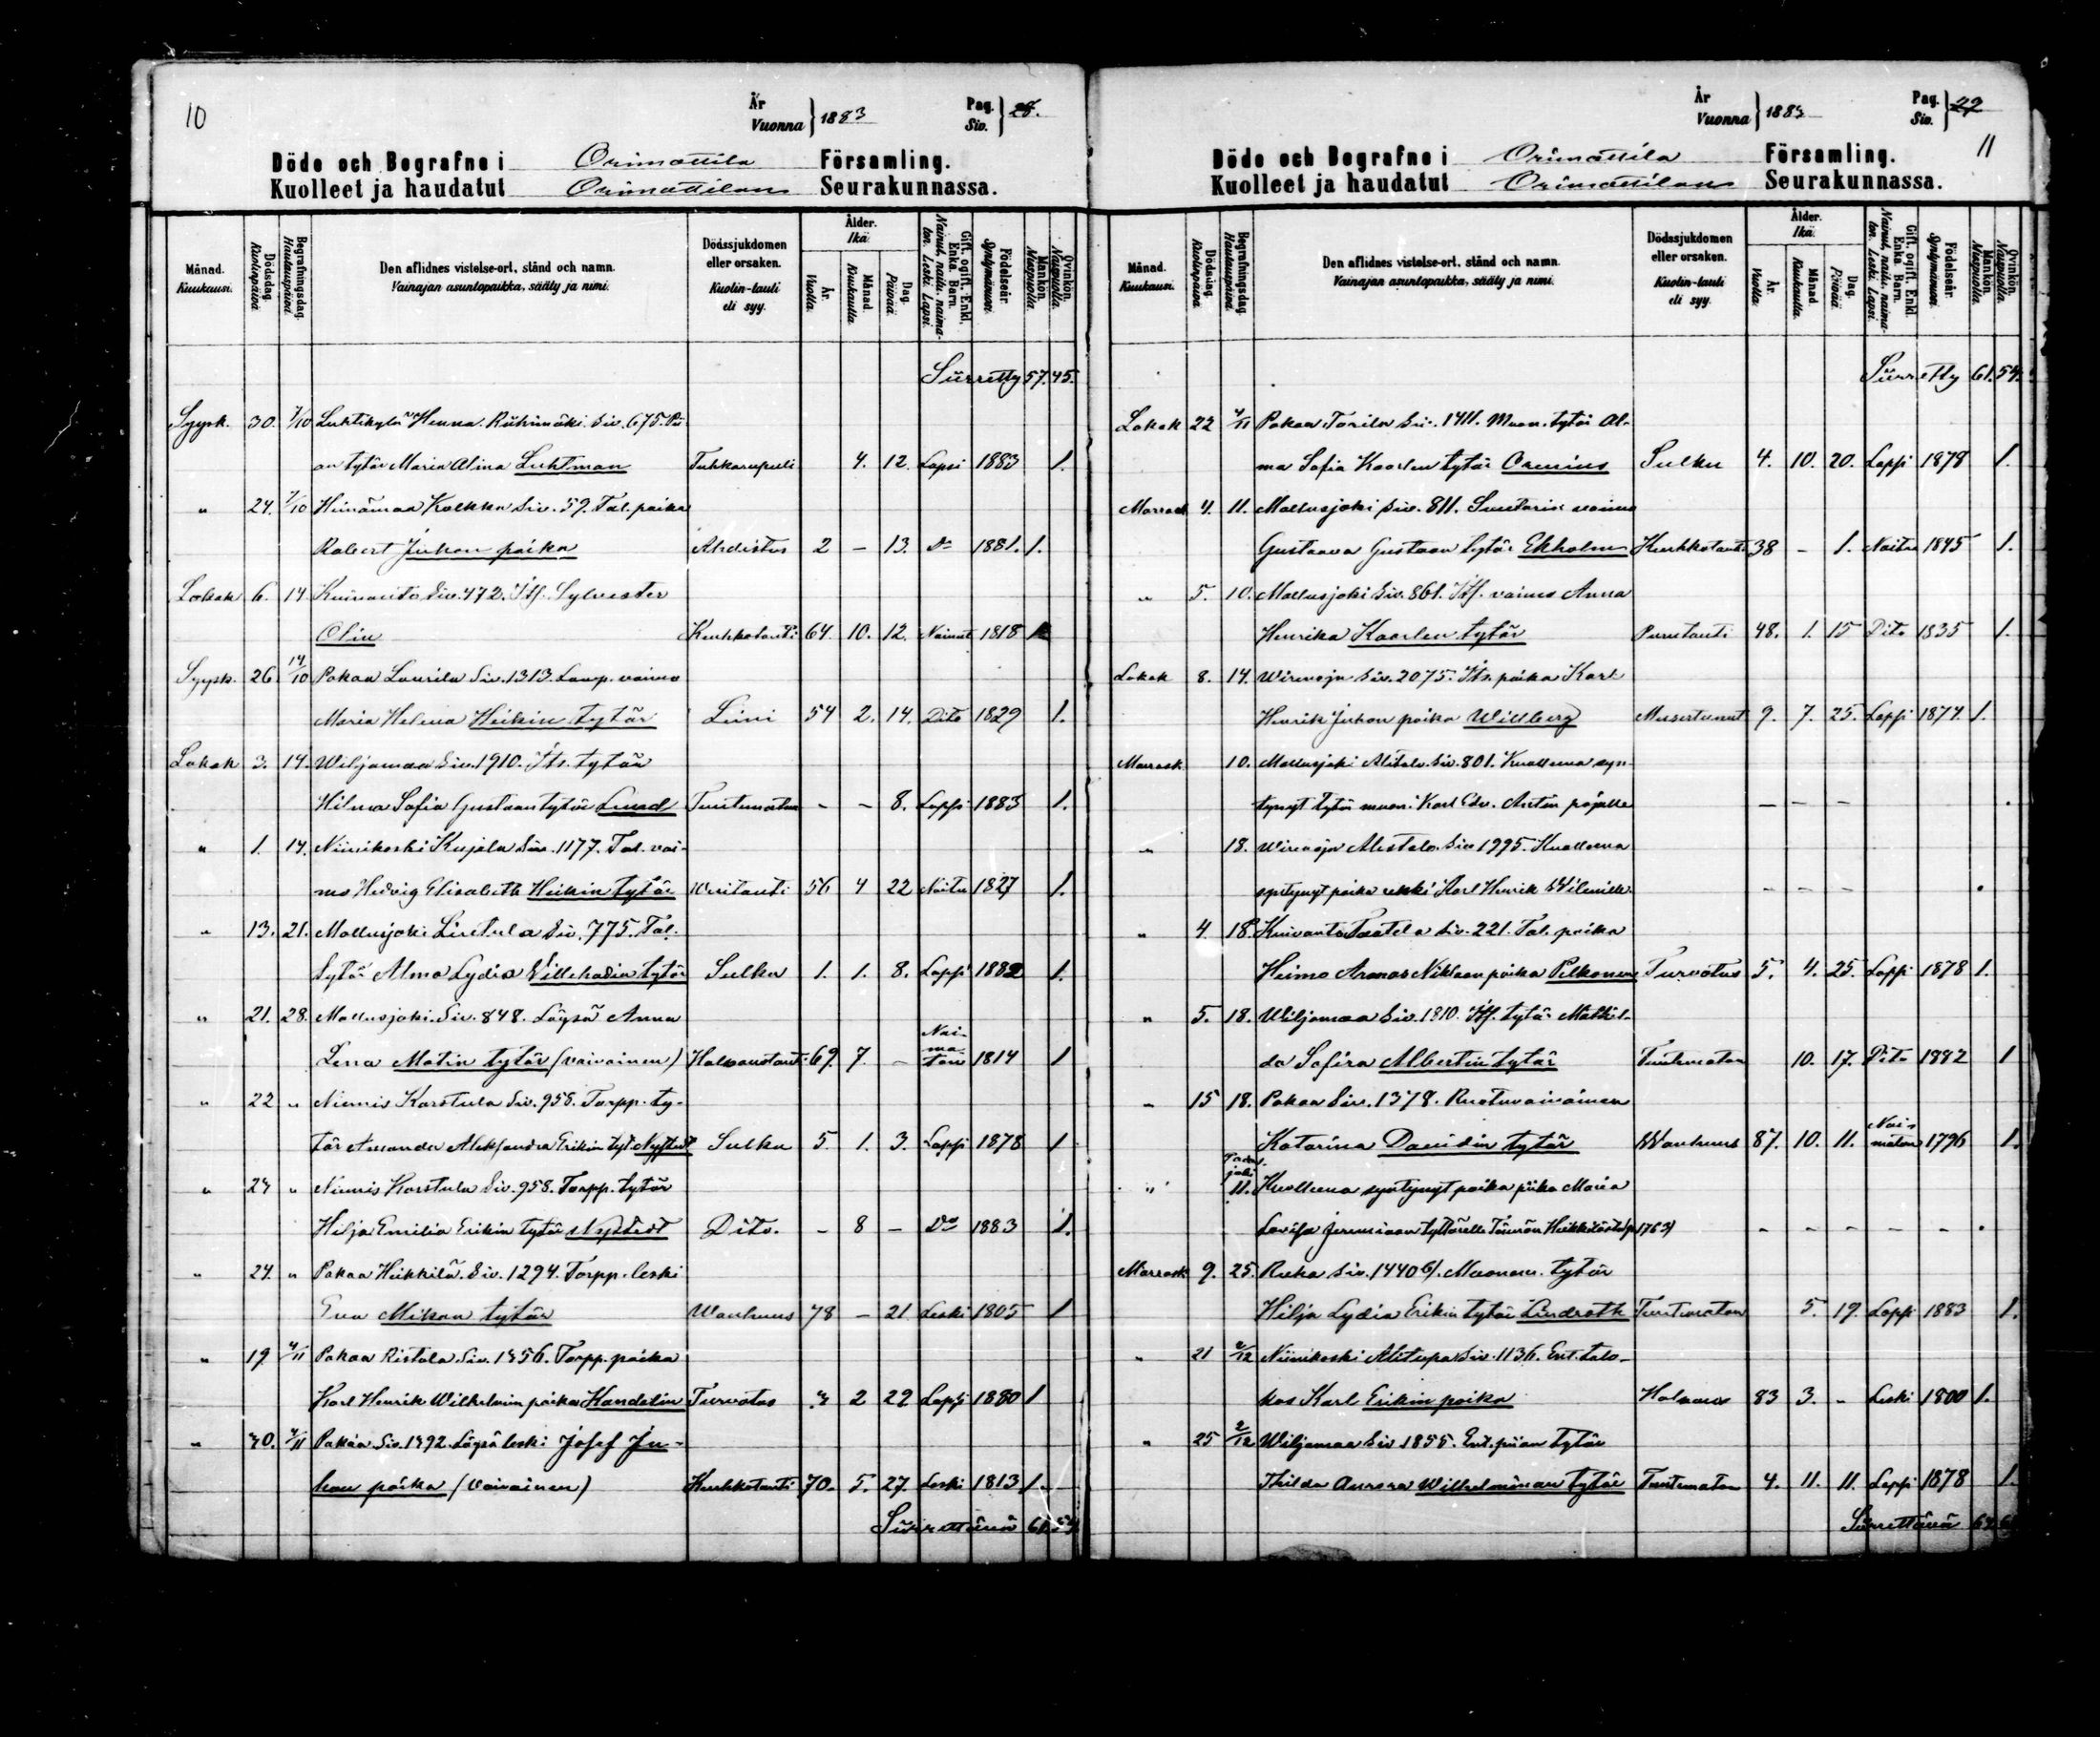 10
År
Vuonna } 1883
Pag.
Siv. } 26.
Döde och Begrafne i Orimattila Församling.
Kuolleet ja haudatut Orimattilan Seurakunnassa.
Månad. Kuukausi.
Dödsdag. Kuolinpäivä
Begrafningsdag. Hautauspäivä
Den aflidnes vistelse-ort, stånd och namn. Vainajan asuntopaikka, sääty ja nimi.
Dödssjukdomen eller orsaken. Kuolin-tauti eli syy.
Ålder. Ikä.
År. Vuotta.
Månad. Kuukautta.
Dag. Päivää.
Gift, ogift. Enkl. Enka. Barn. Nainut, naitu, naimaton. Leski. Lapsi.
Födelseår. Syntymävuosi.
Mankön. Miespuolia.
Qvinkön. Naispuolia.
Siirretty 57. 45.
Syysk. 30. 7/10 Luhtikylä Henna Riihimäki Siv. 675. Pii
an tytär Maria Alina Luhtman Tuhkarupuli 4. 12. Lapsi 1883 1.
„ 24. 7/10 Heinämaa Kolkka Siv. 59. Tal. poika
Robert Juhon poika Ahdistus 2 – 13. Do 1881. 1.
Lokak 6. 14 Kuivanto Siv. 472. Itf. Sylvester
Olin Keuhkotauti 64. 10. 12. Nainut 1818 1
Syysk. 26 14/10 Pakaa Laurila Siv. 1313. Lamp. vaimo
Maria Helena Heikin tytär Liini 54 2. 14. Dito 1829 1.
Lokak 3. 14. Wiljamaa Siv. 1910. Its. tytär
Hilma Sofia Gustaan tytär Lund Tuntematon – – 8. Lapsi 1883 1.
„ 1. 14. Niinikoski Kujala Siv. 1177. Tal. vai-
mo Hedvig Elisabeth Heikin tytär 56 4 22 Naitu 1827 1.
„ 13. 21. Mallusjoki Lintula Siv. 775. Tal.
tytär Alma Lydia Villehadin tytär Sulku 1. 1. 8. Lapsi 1882 1.
„ 21. 28. Mallusjoki Siv. 848. Löysä Anna
Lena Matin tytär (vaivainen) Halvaustauti 69. 7. – Naimaton 1814 1
„ 22 „ Niemis Karstula Siv. 958. Torpp. ty-
tär Amanda Aleksandra Erikin tyt. Nystedt Sulku 5. 1. 3. Lapsi 1878 1
„ 24 „ Niemis Karstula Siv. 958. Torpp. tytär
Hilja Emilia Erikin tytär Nystedt Dito. – 8 – Do 1883 1.
„ 24. „ Pakaa Heikkilä Siv. 1294. Torpp. leski
Eva Mikon tytär Wanhuus 78 – 21 Leski 1805 1
„ 19 4/11 Pakaa Ristola Siv. 1456. Torpp. poika
Karl Henrik Wilhelmin poika Kandelin Turvotus 2 29 Lapsi 1880 1
„ 30. 4/11 Pakaa Siv. 1492. Löysä leski Josef Ju-
han poika (vaivainen) Keuhkotauti 70. 5. 27. Leski 1813 1.
Siirrettävä 61. 54.
År
Vuonna } 1883
Pag.
Siv. } 27
11
Döde och Begrafne i Orimattila Församling.
Kuolleet ja haudatut Orimattilan Seurakunnassa.
Månad. Kuukausi.
Dödsdag. Kuolinpäivä
Begrafningsdag. Hautauspäivä
Den aflidnes vistelse-ort, stånd och namn. Vainajan asuntopaikka, sääty ja nimi.
Dödssjukdomen eller orsaken. Kuolin-tauti eli syy.
Ålder. Ikä.
År. Vuotta.
Månad. Kuukautta.
Dag. Päivää.
Gift, ogift. Enkl. Enka. Barn. Nainut, naitu, naimaton. Leski. Lapsi.
Födelseår. Syntymävuosi.
Mankön. Miespuolia.
Qvinkön. Naispuolia.
Siirretty 61. 54.
Lokak 22 4/11 Pakaa Torila Siv. 1411. Muon. tytär Al-
ma Sofia Kaarlen tytär Orenius Sulku 4. 10. 20. Lapsi 1878 1.
Marrask 4. 11. Mallusjoki Siv. 811. Suutarin vaimo
Gustaava Gustaan tytär Ekholm Keuhkotauti 38 – 1. Naitu 1845 1.
„ 5. 10. Mallusjoki Siv. 861. Itf. vaimo Anna
Henrika Kaarlen tytär Punatauti 48. 1. 15 Dito 1835 1.
Lokak 8. 14. Wirenoja Siv. 2075. Its. poika Karl
Henrik Juhon poika Willberg 9. 7. 25. Lapsi 1874. 1.
Marrask 10. Mallusjoki Alitalo Siv. 801. Kuolleena syn-
tynyt tytär muon. Karl Edv. Antin pojalle – – –
„ 18. Wirenoja Alestalo Siv. 1995. Kuolleena
syntynyt poika renki Karl Henrik – – – –
„ 4. 18. Kuivanto Taatela Siv. 221. Tal. poika
Heimo Armas Niklaan poika Pelkonen Turvotus 5. 4. 25. Lapsi 1878 1.
„ 5. 18. Wiljamaa Siv. 1810. Itf. tytär Mathil-
da Safira Albertin tytär Tuntematon 10. 17. Dito 1882 1
„ 15 18. Pakaa Siv. 1378. Ruotuvaivainen
Katarina Davidin tytär Wanhuus 87. 10. 11. Naimaton 1796 1.
„ 11. Kuolleena syntynyt poika piika Maria
Lovisa Jeremiaan tyttärelle Tönnön Heikkilästä (p. 1763) – – – – –
Marrask 9. 25. Ruha Siv. 1440 6/. Muonam. tytär
Hilja Lydia Erikin tytär Lindroth Tuntematon 5. 19. Lapsi 1883 1.
„ 21 2/12 Niinikoski Alitupa Siv. 1136. Ent. talo-
kas Karl Erikin poika Halvaus 83 3. – Leski 1800 1.
„ 25 2/12 Wiljamaa Siv. 1855. Ent. piian tytär
Thilda Aurora Wilhelminan tytär Tuntematon 4. 11. 11. Lapsi 1878 1.
Siirrettävä